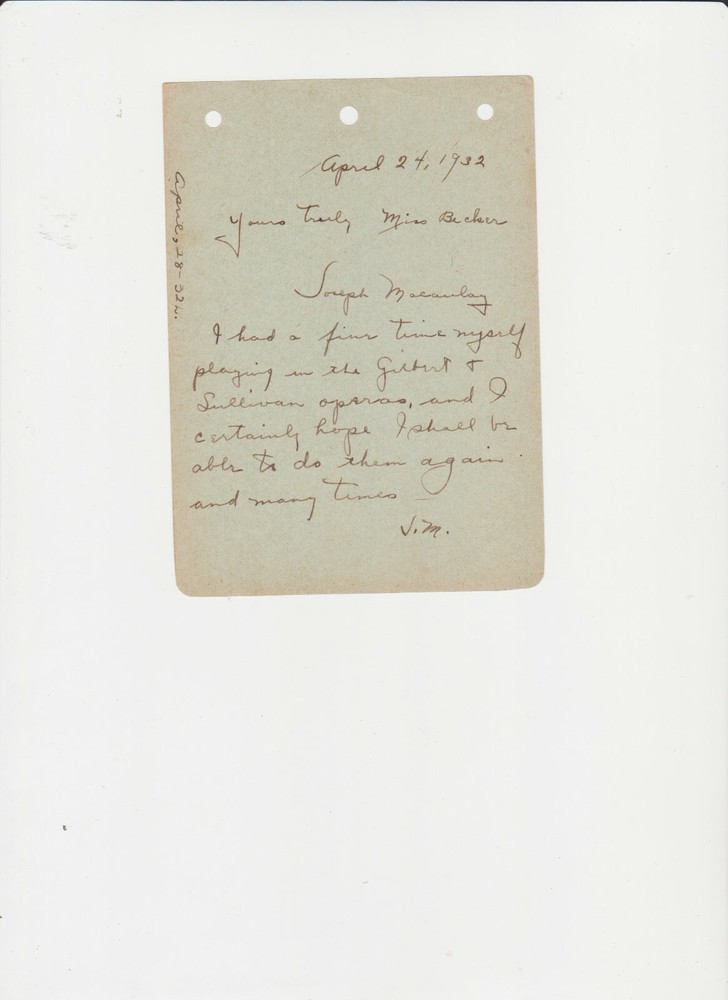 April 24, 1932
Yours truly Miss Becker
Joseph Macaulay
I had a fine time myself
playing in the Gilbert &
Sullivan operas, and I
certainly hope I shall be
able to do them again
and many times —
J.M.
April, 28-32